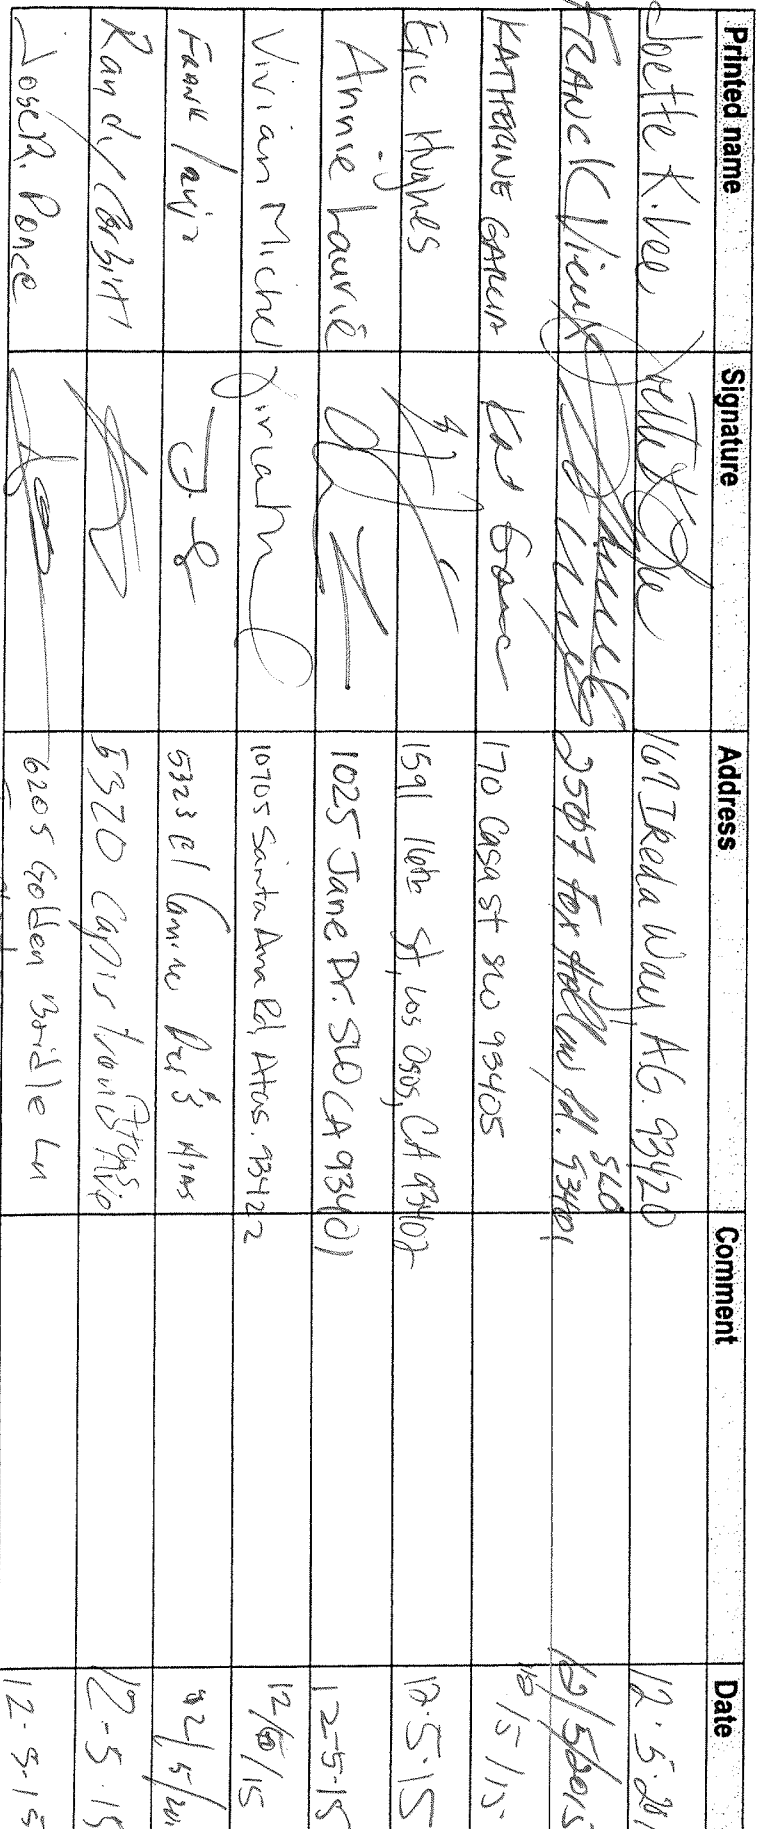 Printed name Signature Address Comment Date
Joette K. Lee 167 Ikeda Way, AG. 93420 12.5.201
FRANCK Vieux 2567 Fox Hollow Rd. SLO 93401 12/5/2015
KATHERINE GARCIA Kat Garc 170 Casa st SLO 93405 12/5/15
Eric Hughes 1591 16th St, Los Osos, CA 93402 12.5.15
Annie Laurie 1025 Jane Dr. SLO CA 93401 12-5-15
Vivian Michel 10705 Santa Ana Rd, Atas. 93422 12/ /15
FRANK 5323 El Camino Atas 12/5/201
Randy 5320 Capistrano Atas 12-5-15
Jose R. Ponce 6205 Golden Bridle Ln 12-5-15